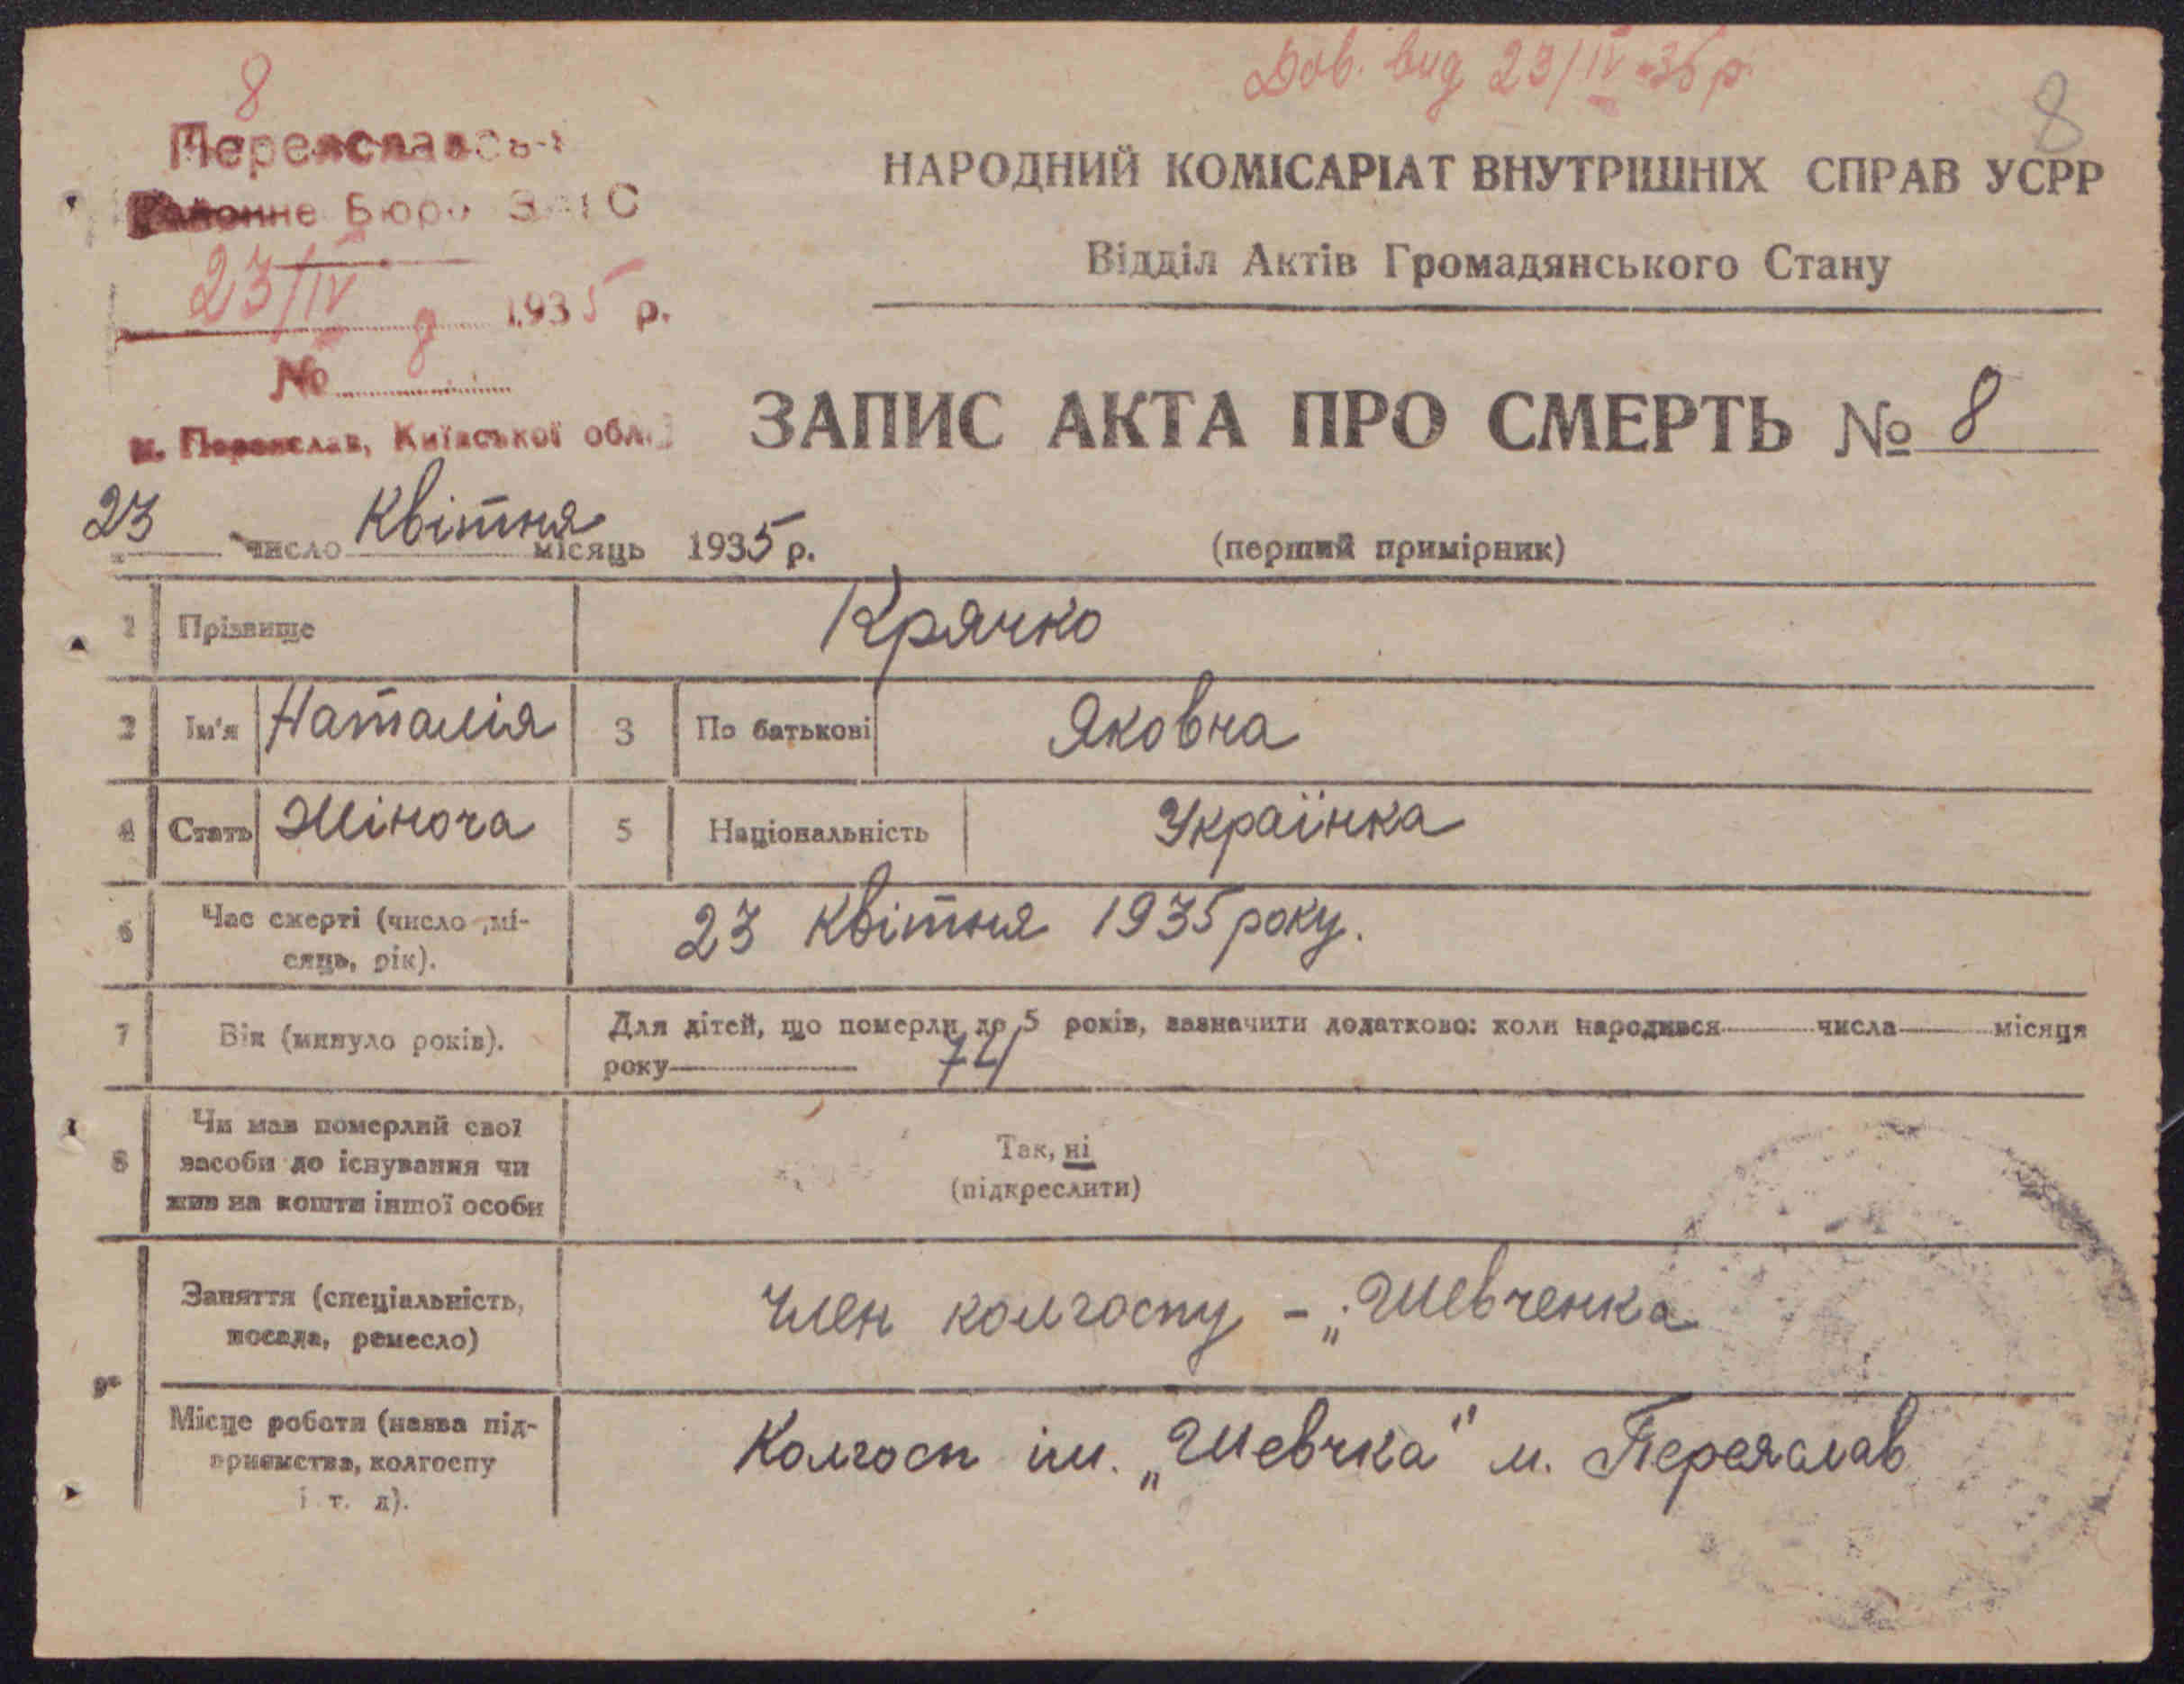 Дов. вид 23/IV-35р.
8
8
Переяславськ
Районне Бюро ЗАГС
23/IV 1935 р.
№ 8
м. Переяслав, Київської обл.
НАРОДНИЙ КОМІСАРІАТ ВНУТРІШНІХ СПРАВ УСРР
Відділ Актів Громадянського Стану
ЗАПИС АКТА ПРО СМЕРТЬ № 8
23 число Квітня місяць 1935 р.
(перший примірник)
1 Прізвище Крячко
2 Ім'я Наталія 3 По батькові Яковна
4 Стать Жіноча 5 Національність Українка
6 Час смерті (число ,мі-
сяць, рік).
23 Квітня 1935 року.
7 Вік (минуло років).
Для дітей, що померли до 5 років, зазначити додатково: коли народився числа місяця
року 74
8 Чи мав померлий свої
засоби до існування чи
жив на кошти іншої особи
Так, ні
(підкреслити)
9 Заняття (спеціальність,
посада, ремесло)
Член колгоспу - „Шевченка
Місце роботи (назва під-
приємства, колгоспу
і т. д).
Колгосп ім. „Шевчка" м. Переяслав